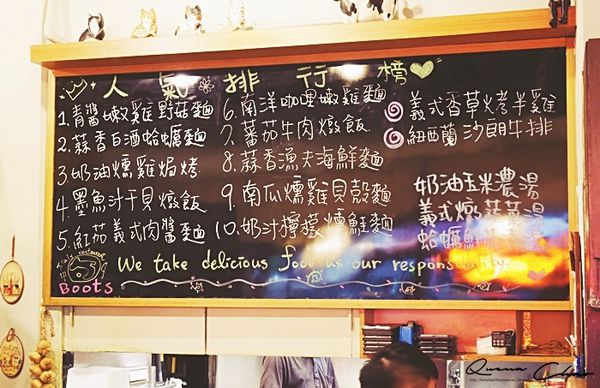 人氣排行榜
1.青醬嫩雞野菇麵
2.蒜香白酒蛤蠣麵
3.奶油燻雞焗烤
4.墨魚汁干貝燉飯
5.紅茄義式肉醬麵
6.南洋咖哩嫩雞麵
7.蕃茄牛肉燉飯
8.蒜香漁夫海鮮麵
9.南瓜燻雞貝殼麵
10.奶汁檸檬燻鮭麵
義式香草烤半雞
紐西蘭沙朗牛排
奶油玉米濃湯
義式燉蔬菜湯
蛤蠣鮮 湯
We take delicious food as our responsibility.
Boots